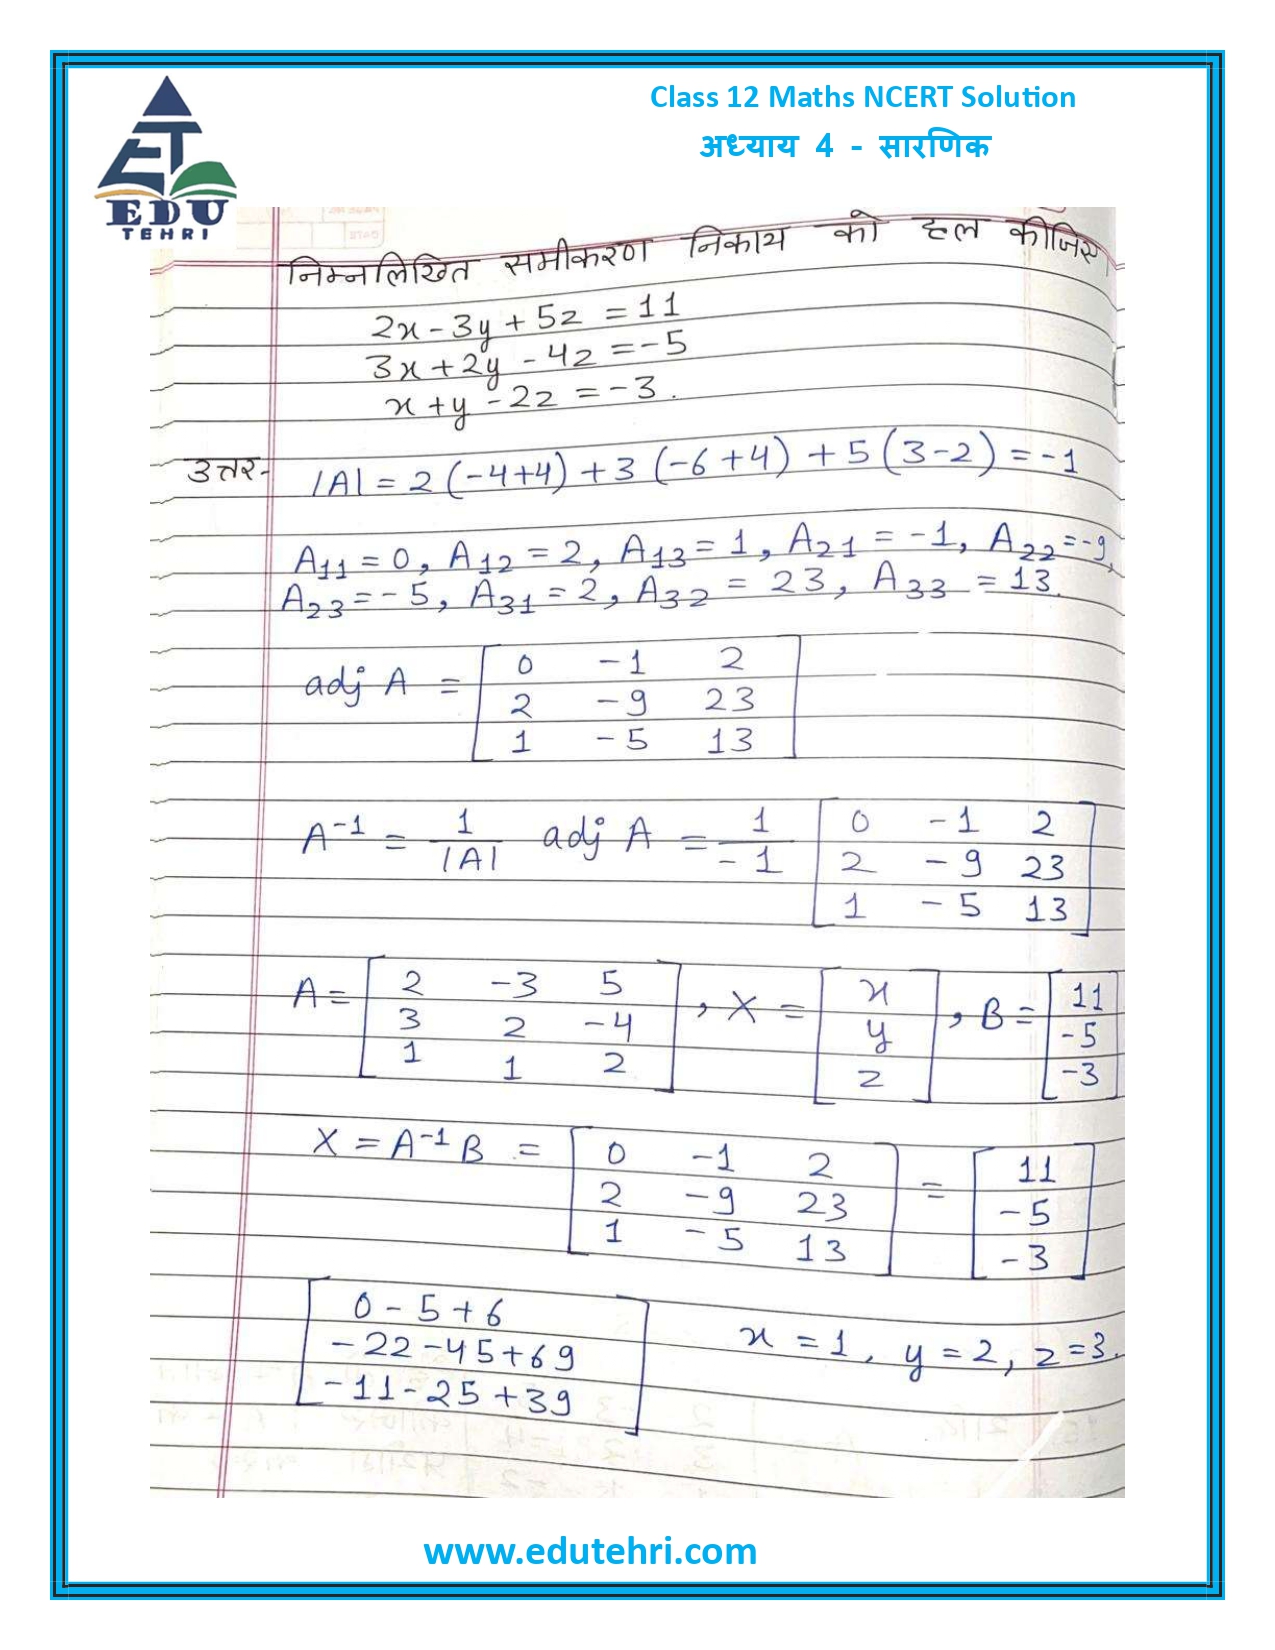 Class 12 Maths NCERT Solution
अध्याय 4 - सारणिक
EDU
TEHRI
निम्नलिखित समीकरण निकाय को हल कीजिए।
2x - 3y + 5z = 11
3x + 2y - 4z = -5
x + y - 2z = -3.
उत्तर- |A| = 2 (-4+4) + 3 (-6+4) + 5 (3-2) = -1
A11 = 0, A12 = 2, A13 = 1, A21 = -1, A22 = -9,
A23 = -5, A31 = 2, A32 = 23, A33 = 13.
adj A = [0 -1 2
2 -9 23
1 -5 13]
A⁻¹ = 1/|A| adj A = 1/-1 [0 -1 2
2 -9 23
1 -5 13]
A = [2 -3 5, X = [x, B = [11
3 2 -4 y -5
1 1 2] z] -3]
X = A⁻¹B = [0 -1 2 = [11
2 -9 23 -5
1 -5 13] -3]
[0 - 5 + 6
-22 - 45 + 69
-11 - 25 + 39]
x = 1, y = 2, z = 3.
www.edutehri.com